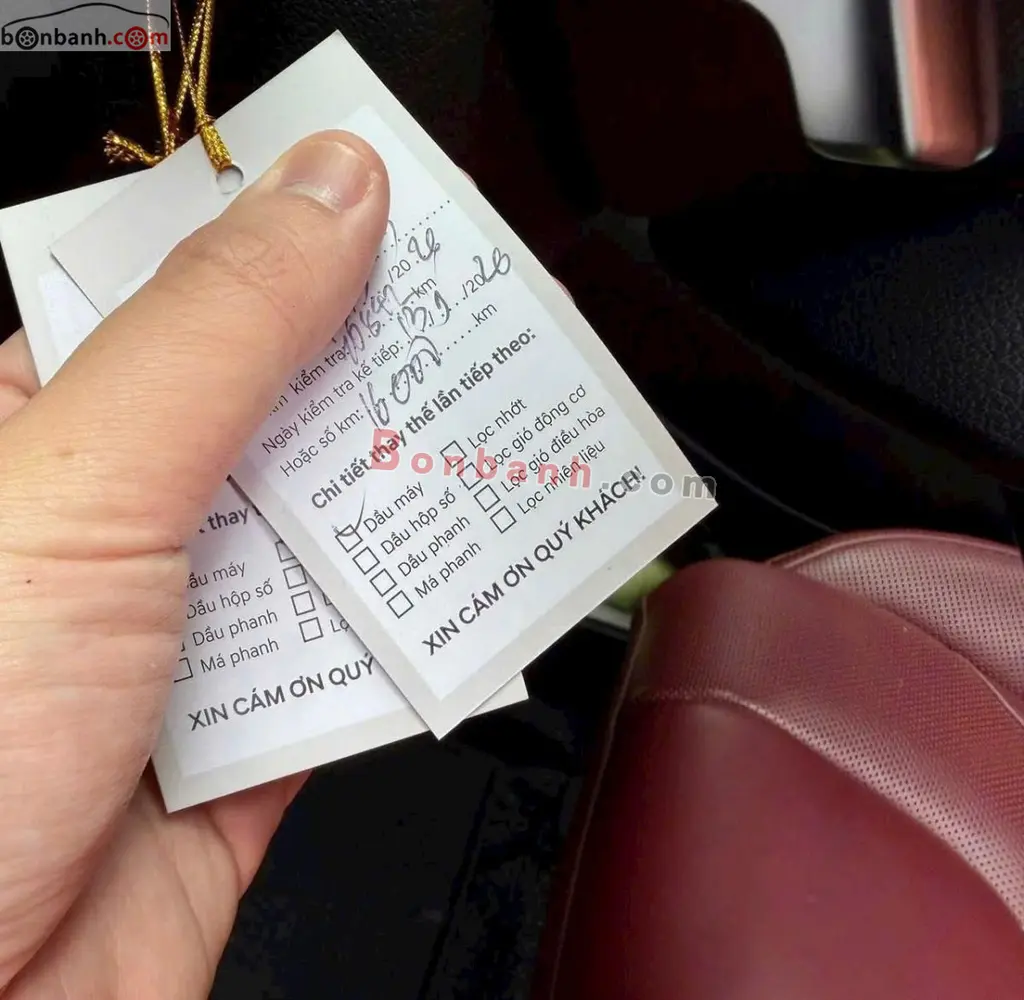 bonbanh.com
/2026
km kiểm tra: km
Ngày kiểm tra kế tiếp: /2026
Hoặc số km: 16000 km
Chi tiết thay thế lần tiếp theo:
Dầu máy
Lọc nhớt
Dầu hộp số
Lọc gió động cơ
Dầu phanh
Lọc gió điều hòa
Má phanh
Lọc nhiên liệu
XIN CÁM ƠN QUÝ KHÁCH!
Bonbanh.com
thay
Dầu máy
Dầu hộp số
Dầu phanh
Má phanh
XIN CÁM ƠN QUÝ